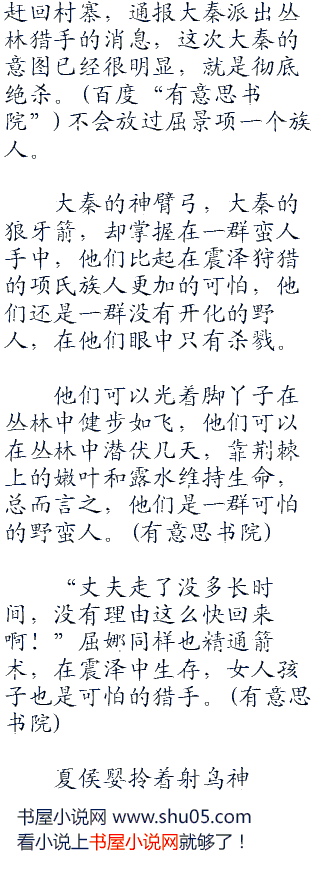 赶回村寨，通报大秦派出丛
林猎手的消息，这次大秦的
意图已经很明显，就是彻底
绝杀。(百度“有意思书
院”)不会放过屈景项一个族
人。
大秦的神臂弓，大秦的
狼牙箭，却掌握在一群蛮人
手中，他们比起在震泽狩猎
的项氏族人更加的可怕，他
们还是一群没有开化的野
人，在他们眼中只有杀戮。
他们可以光着脚丫子在
丛林中健步如飞，他们可以
在丛林中潜伏几天，靠荆棘
上的嫩叶和露水维持生命，
总而言之，他们是一群可怕
的野蛮人。(有意思书院)
“丈夫走了没多长时
间，没有理由这么快回来
啊！”屈娜同样也精通箭
术，在震泽中生存，女人孩
子也是可怕的猎手。(有意思
书院)
夏侯婴拎着射鸟神
书屋小说网 www.shu05.com
看小说上书屋小说网就够了！